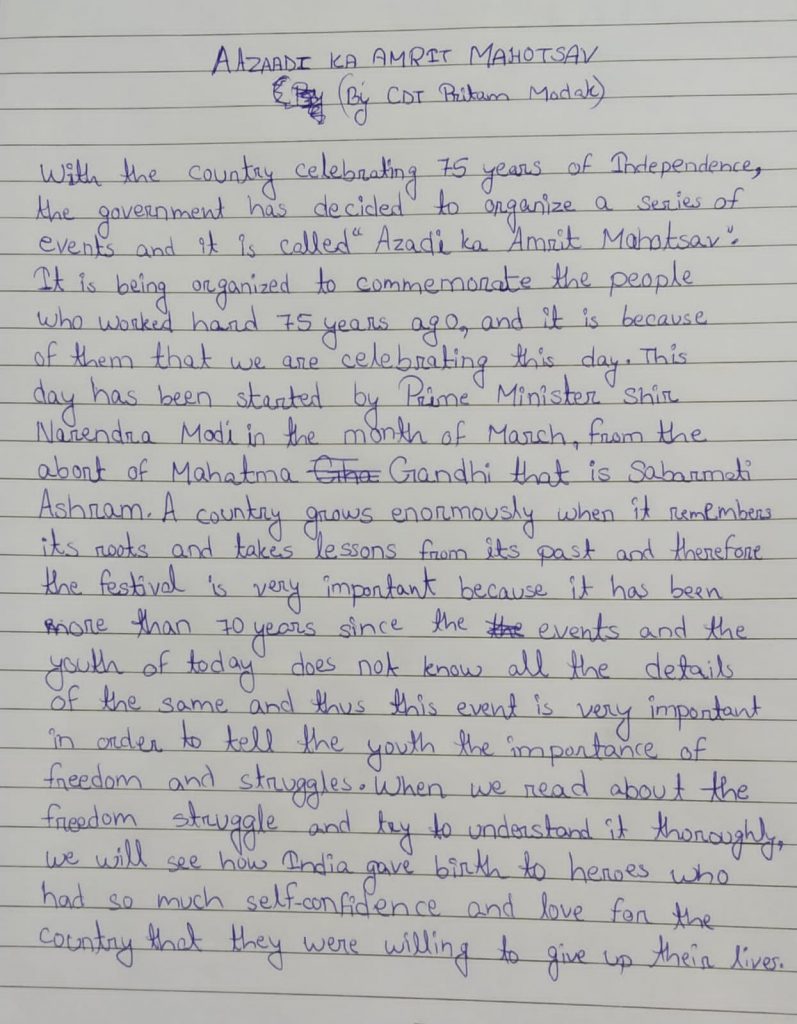 AAZAADI KA AMRIT MAHOTSAV
(By CDT Pritam Modak)
With the country celebrating 75 years of Independence,
the government has decided to organize a series of
events and it is called "Azadi ka Amrit Mahotsav".
It is being organized to commemorate the people
who worked hard 75 years ago, and it is because
of them that we are celebrating this day. This
day has been started by Prime Minister Shir
Narendra Modi in the month of March, from the
abort of Mahatma Gandhi that is Sabarmati
Ashram. A country grows enormously when it remembers
its roots and takes lessons from its past and therefore
the festival is very important because it has been
more than 70 years since the events and the
youth of today does not know all the details
of the same and thus this event is very important
in order to tell the youth the importance of
freedom and struggles. When we read about the
freedom struggle and try to understand it thoroughly,
we will see how India gave birth to heroes who
had so much self-confidence and love for the
country that they were willing to give up their lives.